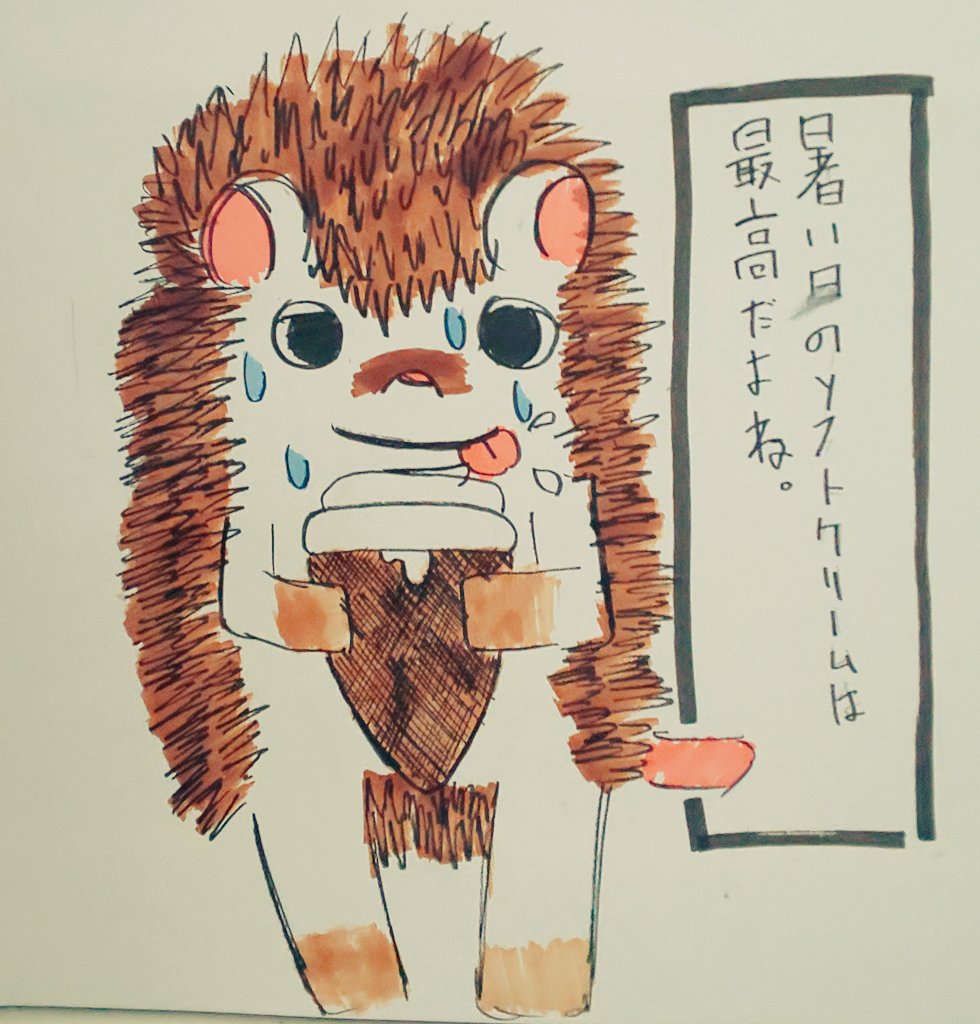 暑い日のソフトクリームは
最高だよね。